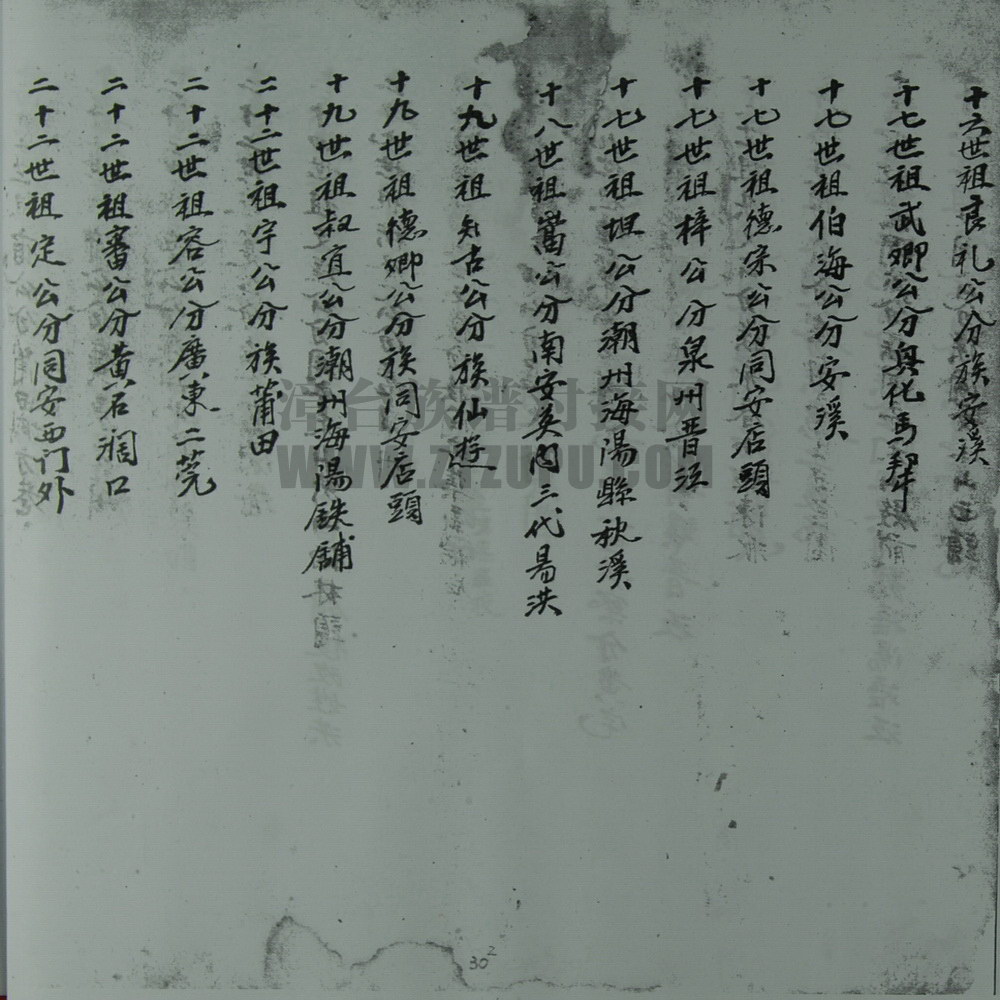 十六世祖良礼公分族安溪
十七世祖武卿公分興化馬犀
十七世祖伯海公分安溪
十七世祖德宋公分同安店頭
十七世祖梓公分泉州晋江
十七世祖坦公分潮州海陽縣秋溪
十八世祖嵩公分南安英内三代易洪
十九世祖知古公分族仙遊
十九世祖德卿公分族同安店頭
十九世祖叔宜公分潮州海陽鉄舖
二十二世祖宇公分族莆田
二十二世祖容公分廣東二莞
二十二世祖審公分黄石澗口
二十二世祖定公分同安西门外
漳台族谱对接网
WWW.ZTZUPU.COM
30²